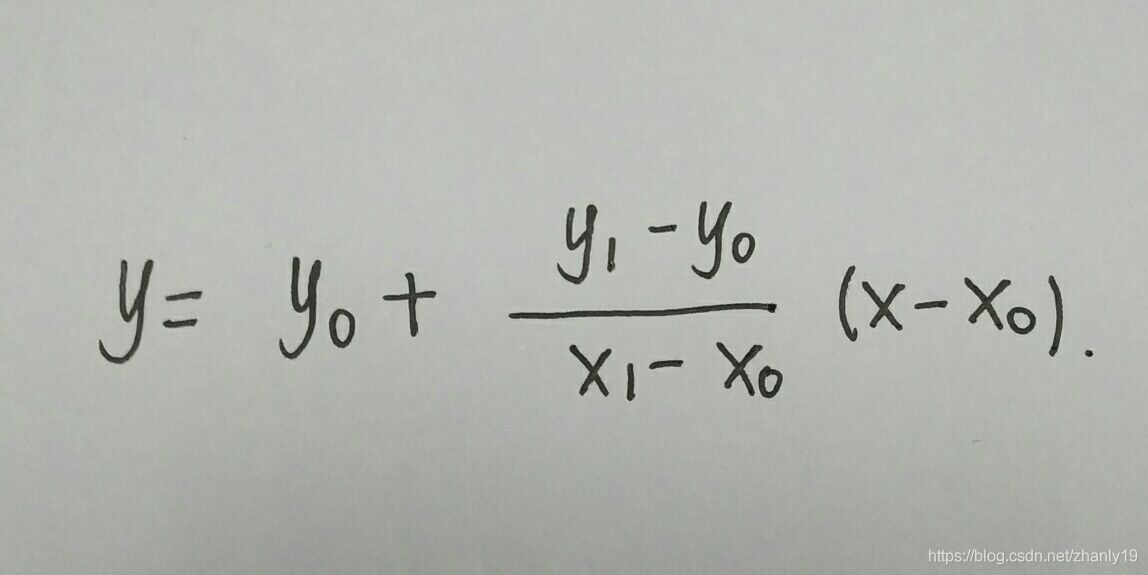 y = y₀ + \frac{y₁ - y₀}{x₁ - x₀} (x - x₀).
https://blog.csdn.net/zhanly19